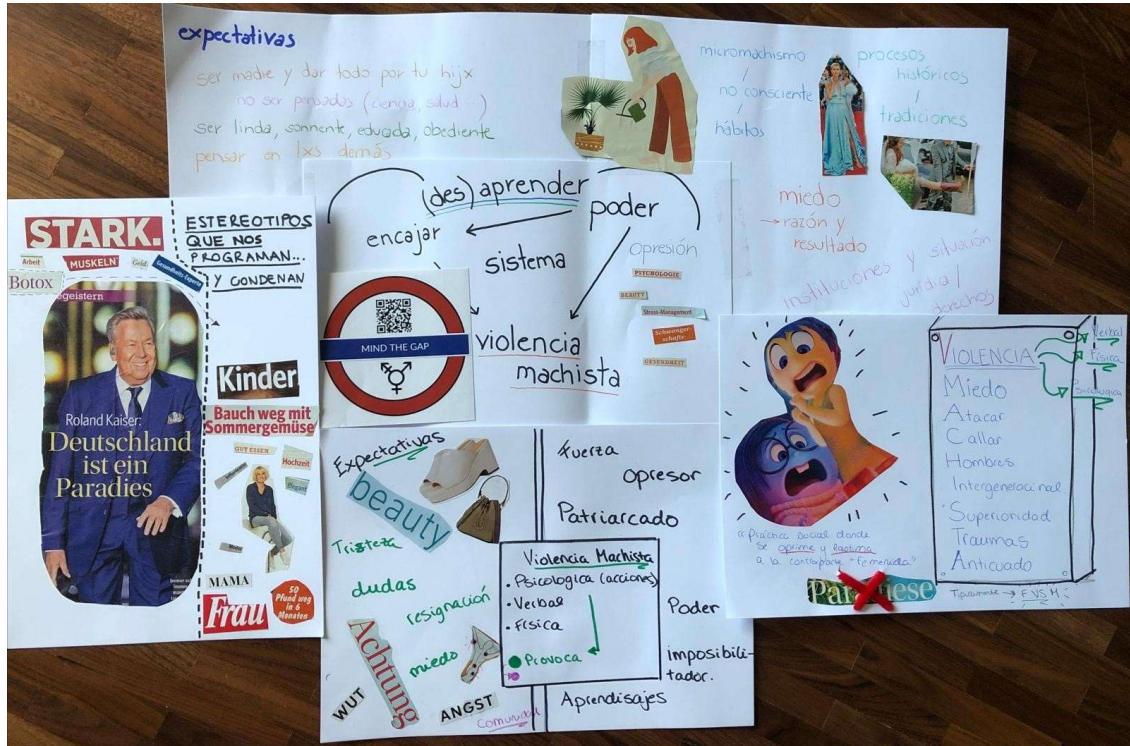 expectativas
ser madre y dar todo por tu hijx
no ser pensadas (ciencia, salud ...)
ser linda, sonriente, educada, obediente
pensar en lxs demás
micromachismo
/
no consciente
/
hábitos
procesos
históricos
/
tradiciones
miedo
→ razón y
resultado
instituciones y situación
jurídia /
derechos
(des) aprender
poder
encajar
sistema
violencia
machista
opresión
PSYCHOLOGIE
BEAUTY
Stress-Management
Schwanger-
schafts-
GESUNDHEIT
MIND THE GAP
STARK.
Arbeit
MUSKELN
Geld
Gesundheits-Experte
Botox
egeistern
Roland Kaiser:
Deutschland
ist ein
Paradies
ESTEREOTIPOS
QUE NOS
PROGRAMAN...
Y CONDENAN
Kinder
Bauch weg mit
Sommergemüse
GUT ESSEN
Hochzeit
Elegant
Mode
MAMA
Frau
50
Pfund weg
in 6
Monaten
Expectativas
beauty
Tristeza
dudas
resignación
Achtung
miedo
WUT
ANGST
Comunidad
Fuerza
opresor
Patriarcado
Violencia Machista
• Psicologica (acciones)
• Verbal
• Física
Provoca
Poder
imposibili-
tador.
Aprendisajes
"Práctica social donde
se oprime y legitima
a la contraparte "femenina"
Tipicamente → F VS M
VIOLENCIA
Miedo
Atacar
Callar
Hombres
Intergeneracinal
Superioridad
Traumas
Anticuado
Verbal
Física
Psicologica